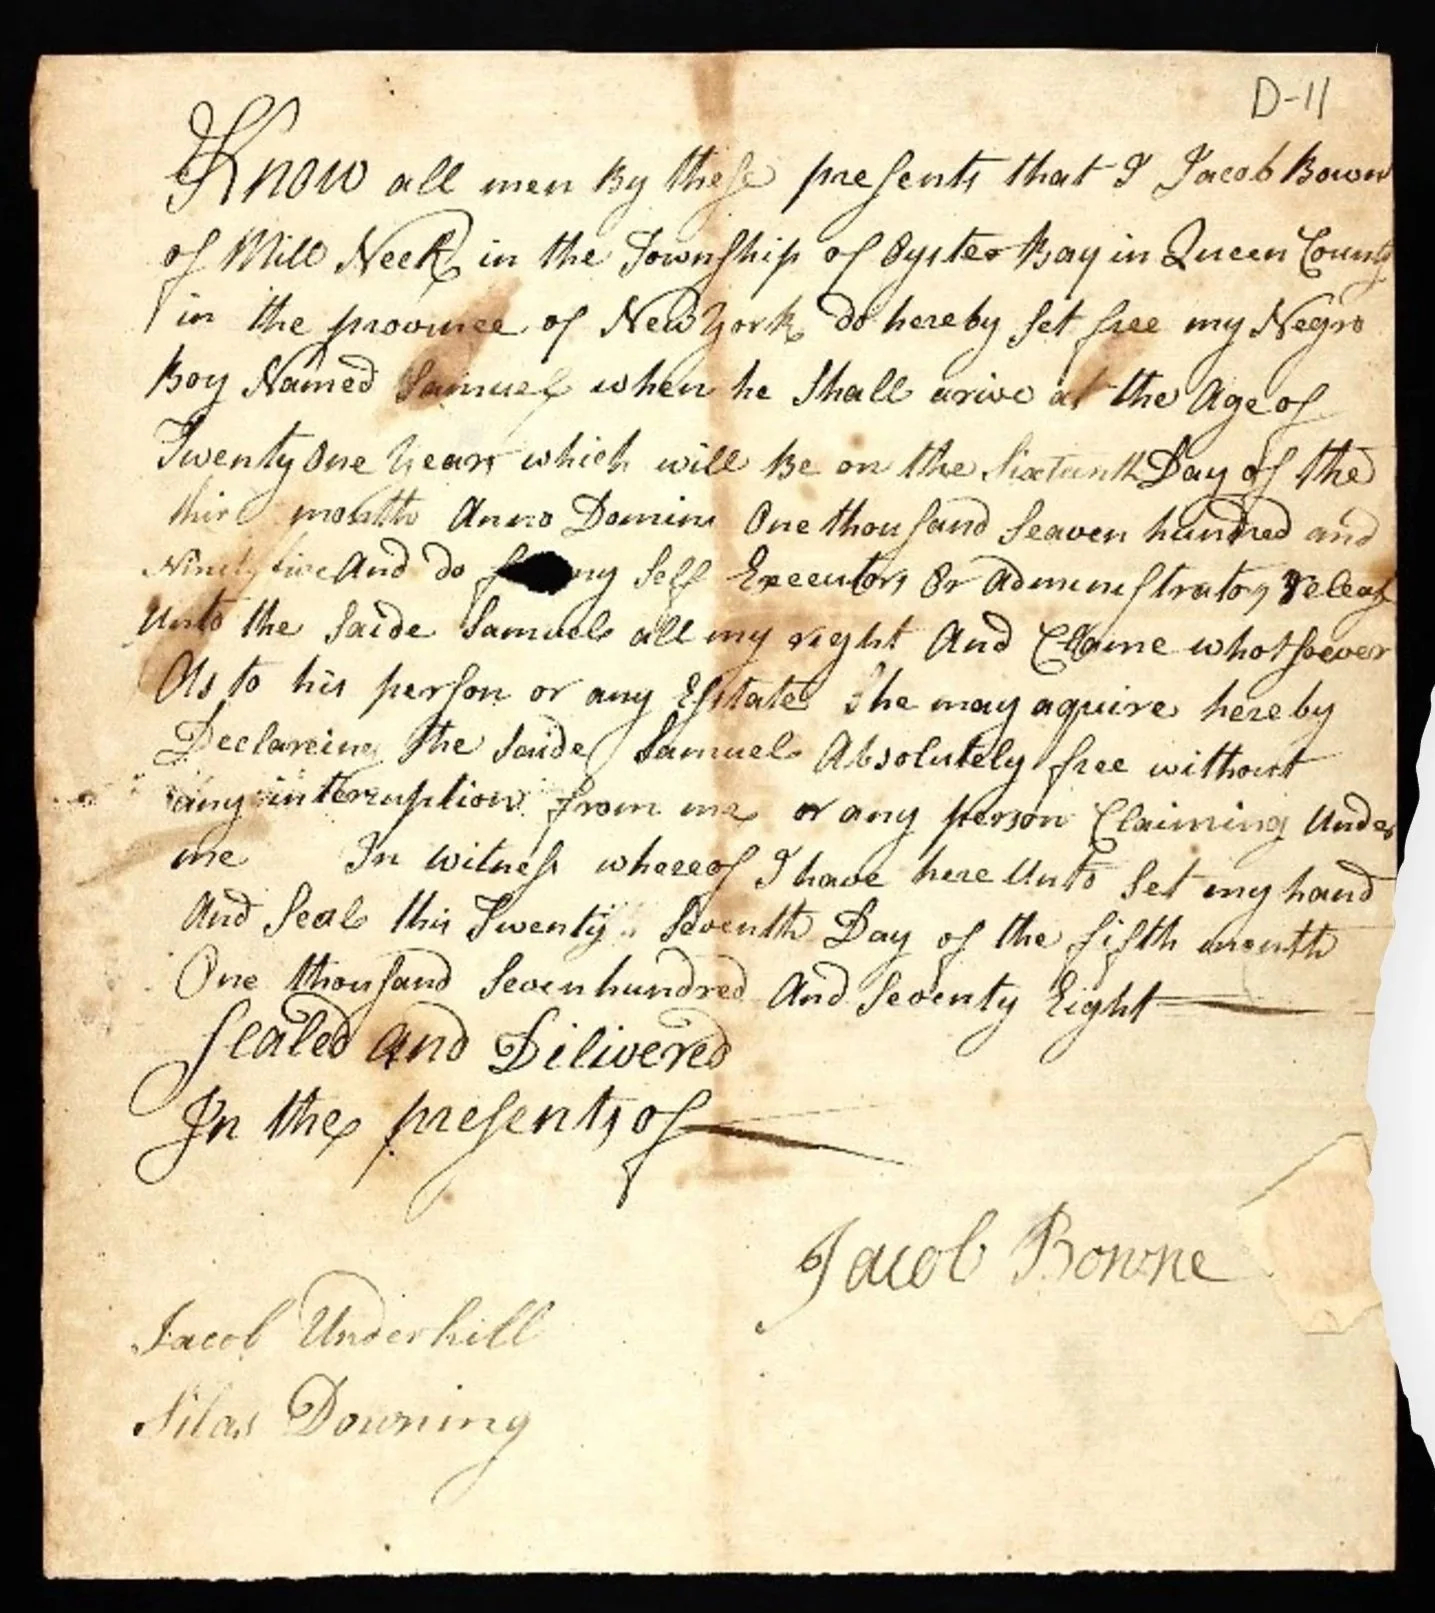 D-11
Know all men By these presents that I Jacob Bown
of Mill Neck in the Township of Oyster Bay in Queen County
in the province of New York do hereby set free my Negro
Boy Named Samuel when he Shall arive at the Age of
Twenty One Years which will Be on the Sixteenth Day of the
third month Anno Domini One thousand Seaven hundred and
Ninety five And do my Self Executors Or Administrators releas
Unto the Saide Samuel all my right And Claime whotsoever
As to his person or any Estate he may aquire hereby
Declareing the Saide Samuel Absolutely free without
any interruption from me or any person Claiming Under
me In witness whereof I have here Unto Set my hand
And Seal this Twenty Seventh Day of the fifth month
One thousand Seven hundred And Seventy Eight
Sealed and Dilivered
In the presents of
Jacob Bowne
Jacob Underhill
Silas Downing